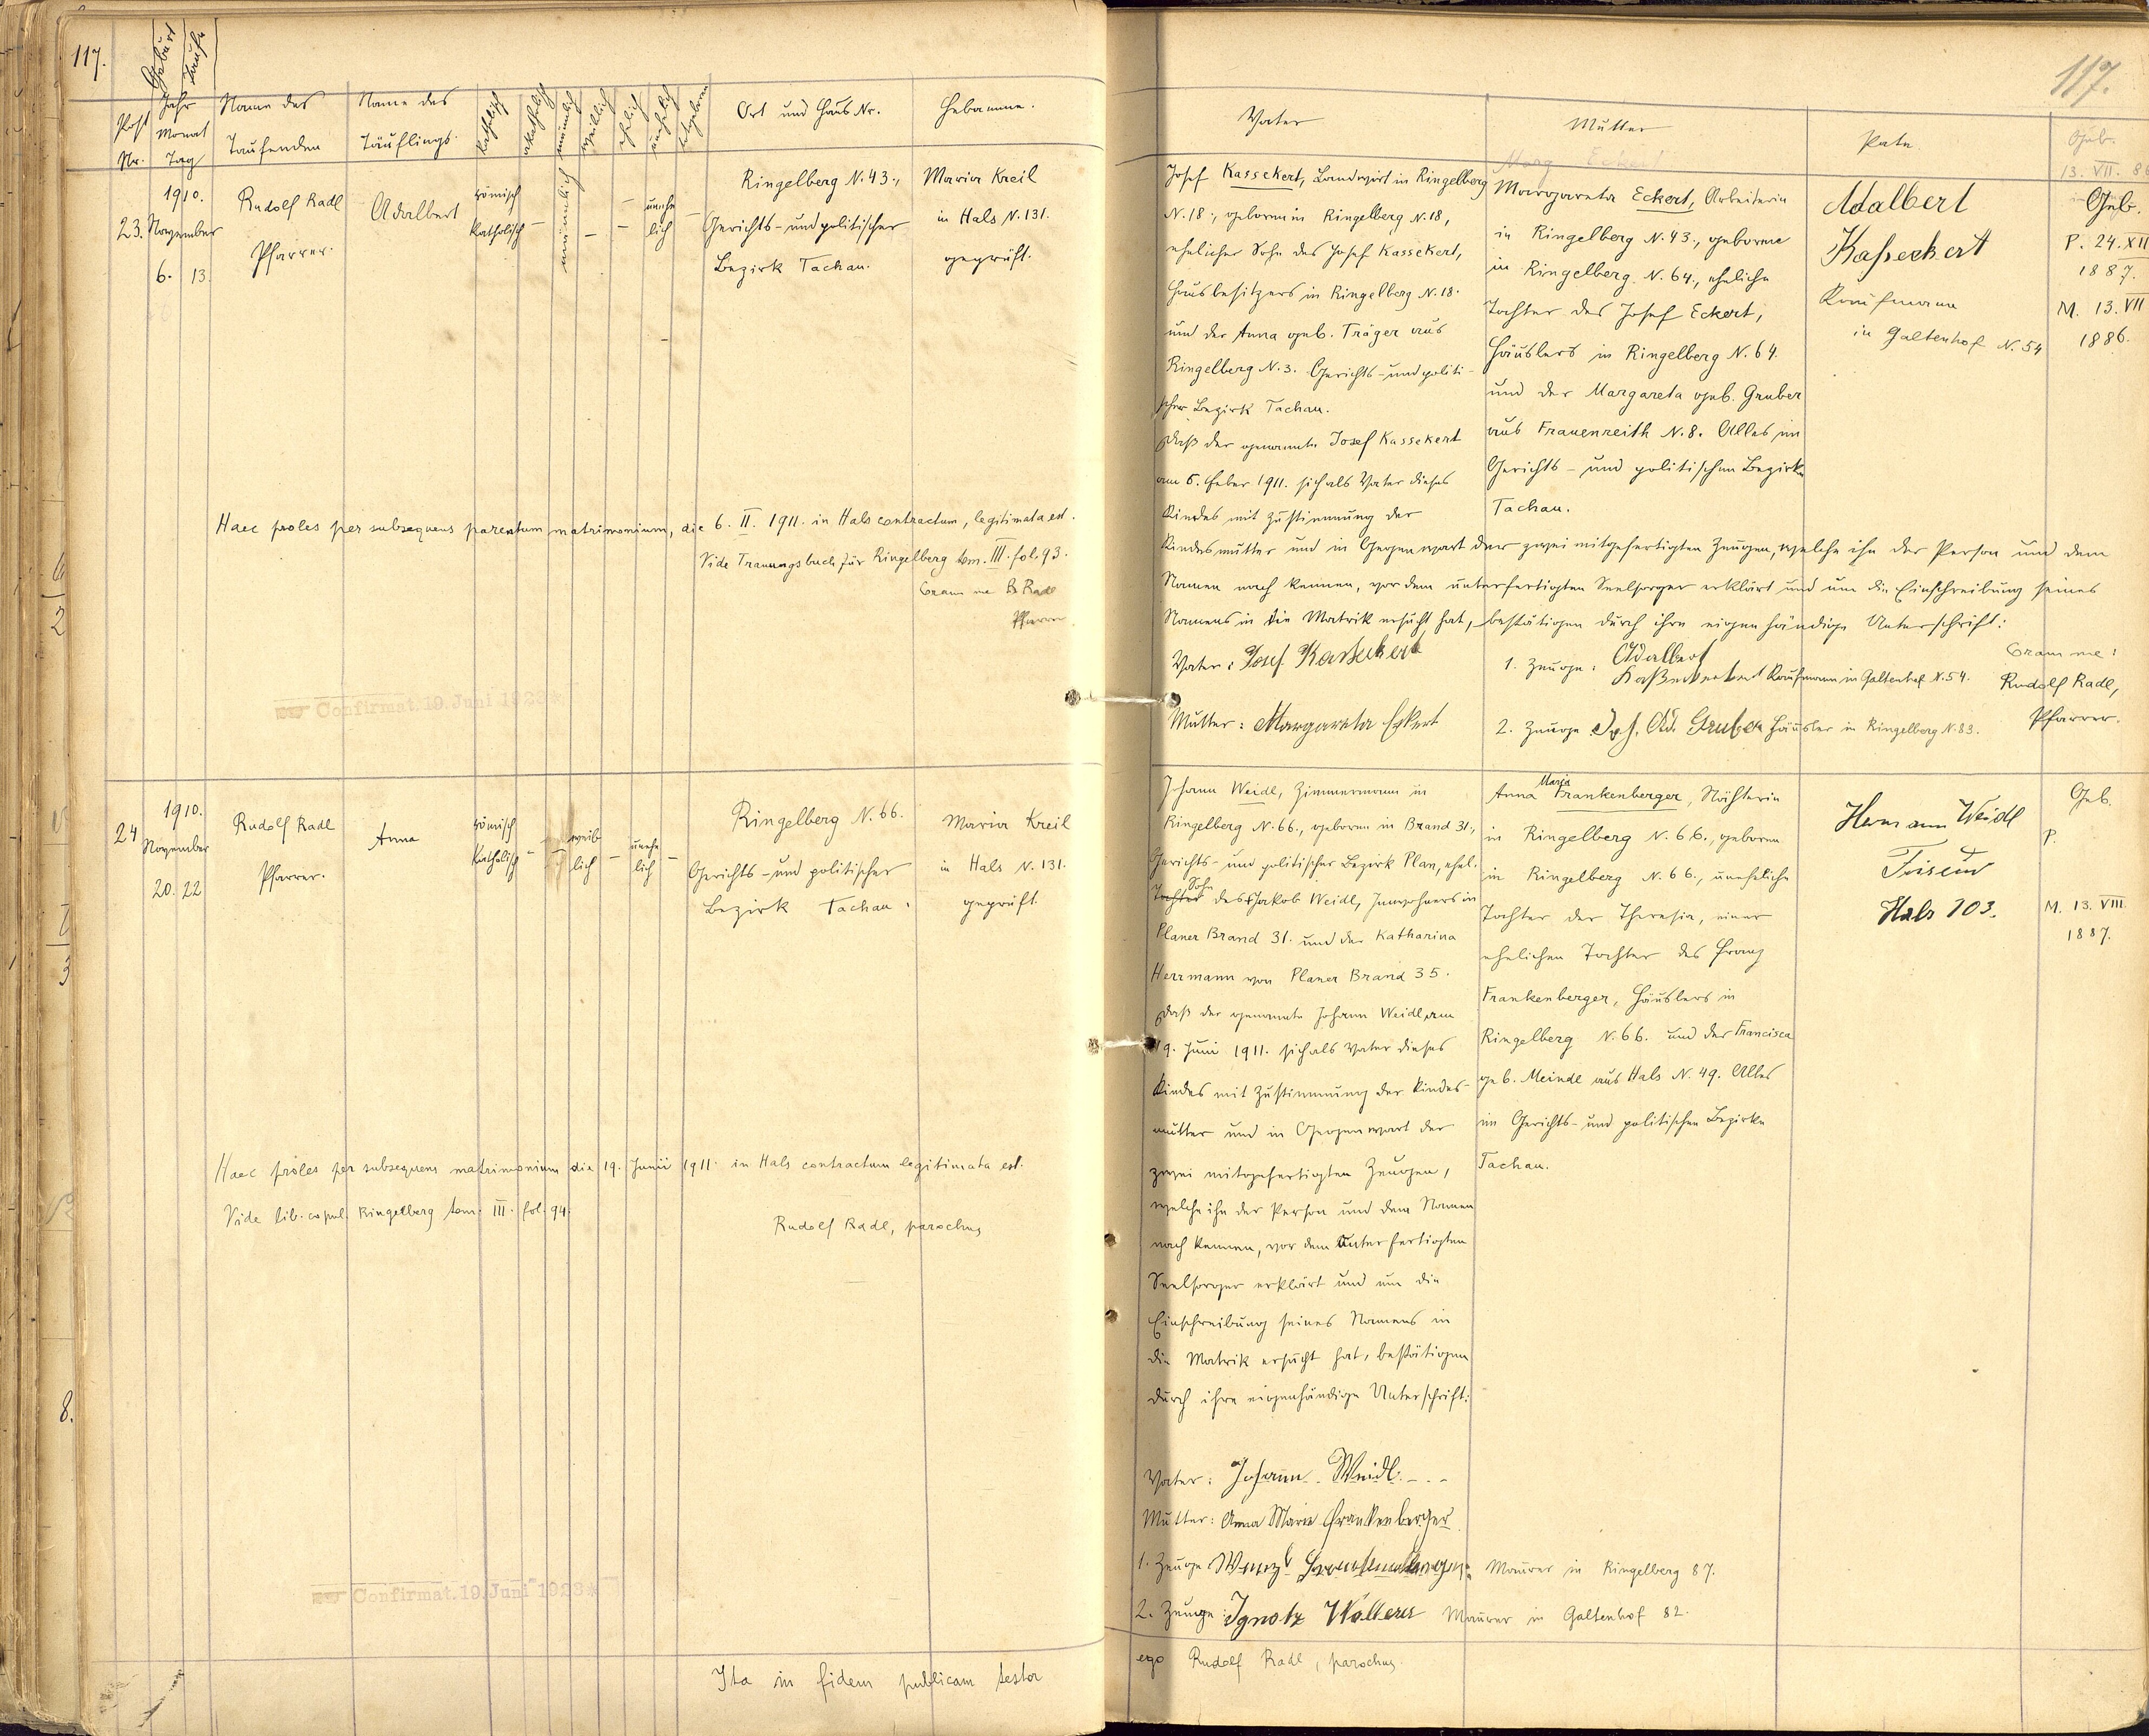 117.
Geburt
Taufe
Post Nr.
Jahr Monat Tag
Name des Taufenden
Name des Täuflings.
katholisch
akatholisch
männlich
weiblich
ehelich
unehelich
totgeboren
Ort und Haus Nr.
Hebamme.
23.
1910.
November
6. 13.
Rudolf Radl
Pfarrer.
Adalbert
römisch
katholisch
–
männlich
–
–
–
unehe
lich
–
Ringelberg N. 43.,
Gerichts- und politischer
Bezirk Tachau.
Maria Kreil
in Hals N. 131.
geprüft.
Haec proles per subsequens parentum matrimonium, die 6. II. 1911. in Hals contractum, legitimata est.
Vide Trauungsbuch für Ringelberg tom. III. fol. 93.
Coram me R. Radl
Pfarrer
Confirmat. 19. Juni 1923
24
1910.
November
20. 22
Rudolf Radl
Pfarrer.
Anna
römisch
katholisch
–
–
weib
lich
–
unehe
lich
–
Ringelberg N. 66.
Gerichts- und politischer
Bezirk Tachau.
Maria Kreil
in Hals N. 131.
geprüft.
Haec proles per subsequens matrimonium die 19. Junii 1911. in Hals contractum legitimata est.
Vide lib. copul. Ringelberg tom. III. fol. 94.
Rudolf Radl, parochus
Confirmat. 19. Juni 1923
Ita in fidem publicam testor
117.
Vater
Mutter
Pate.
Geb.
13. VII. 86
Marg Eckert
Josef Kassekert, Landwirt in Ringelberg
N. 18., geboren in Ringelberg N. 18,
ehelicher Sohn des Josef Kassekert,
Hausbesitzers in Ringelberg N. 18.
und der Anna geb. Träger aus
Ringelberg N. 3. Gerichts- und politi-
scher Bezirk Tachau.
Daß der genannte Josef Kassekert
am 6. Feber 1911. sich als Vater dieses
Kindes mit Zustimmung der
Kindesmutter und in Gegenwart der zwei mitgefertigten Zeugen, welche ihn der Person und dem
Namen nach kennen, vor dem unterfertigten Seelsorger erklärt und um die Einschreibung seines
Namens in die Matrik ersucht hat, bestätigen durch ihre eigenhändige Unterschrift:
Margareta Eckert, Arbeiterin
in Ringelberg N. 43., geborene
in Ringelberg N. 64., eheliche
Tochter des Josef Eckert,
Häuslers in Ringelberg N. 64.
und der Margareta geb. Gruber
aus Frauenreith N. 8. Alles im
Gerichts- und politischen Bezirke
Tachau.
Adalbert
Kaßeckert
Kaufmann
in Galtenhof N. 54
Geb.
P. 24. XII
1887.
M. 13. VII
1886.
Vater: Josef Kasseckert
Mutter: Margareta Eckert
1. Zeuge: Adalbert
Kaßeckert Kaufmann in Galtenhof N. 54.
2. Zeuge Jos. Ad. Gruber Häusler in Ringelberg N. 83.
Coram me:
Rudolf Radl,
Pfarrer.
Johann Weidl, Zimmermann in
Ringelberg N. 66., geboren in Brand 31.,
Gerichts- und politischer Bezirk Plan, ehel.
Tochter Sohn des Jakob Weidl, Inwohners in
Planer Brand 31. und der Katharina
Herrmann von Planer Brand 35.
Daß der genannte Johann Weidl am
19. Juni 1911. sich als Vater dieses
Kindes mit Zustimmung der Kindes-
mutter und in Gegenwart der
zwei mitgefertigten Zeugen,
welche ihn der Person und dem Namen
nach kennen, vor dem unterfertigten
Seelsorger erklärt und um die
Einschreibung seines Namens in
die Matrik ersucht hat, bestätigen
durch ihre eigenhändige Unterschrift:
Anna Maria Frankenberger, Nähterin
in Ringelberg N. 66., geboren
in Ringelberg N. 66., uneheliche
Tochter der Theresia, einer
ehelichen Tochter des Franz
Frankenberger, Häuslers in
Ringelberg N. 66. und der Francisca
geb. Meindl aus Hals N. 49. Alles
im Gerichts- und politischen Bezirke
Tachau.
Hermann Weidl
Friseur
Hals 103.
Geb.
P.
M. 13. VIII.
1887.
Vater: Johann Weidl
Mutter: Anna Maria Frankenberger
1. Zeuge Wenzl Frankenberger Maurer in Ringelberg 87.
2. Zeuge: Ignatz Wolterer Maurer in Galtenhof 82.
ego Rudolf Radl, parochus.